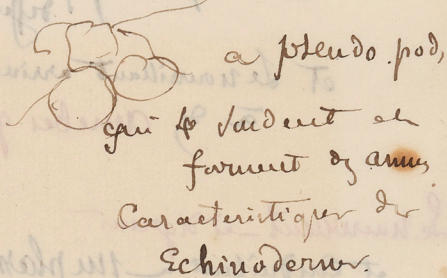 a pseudopod,
qui se soudent et
forment des
Caracteristiques des
Echinodermes.